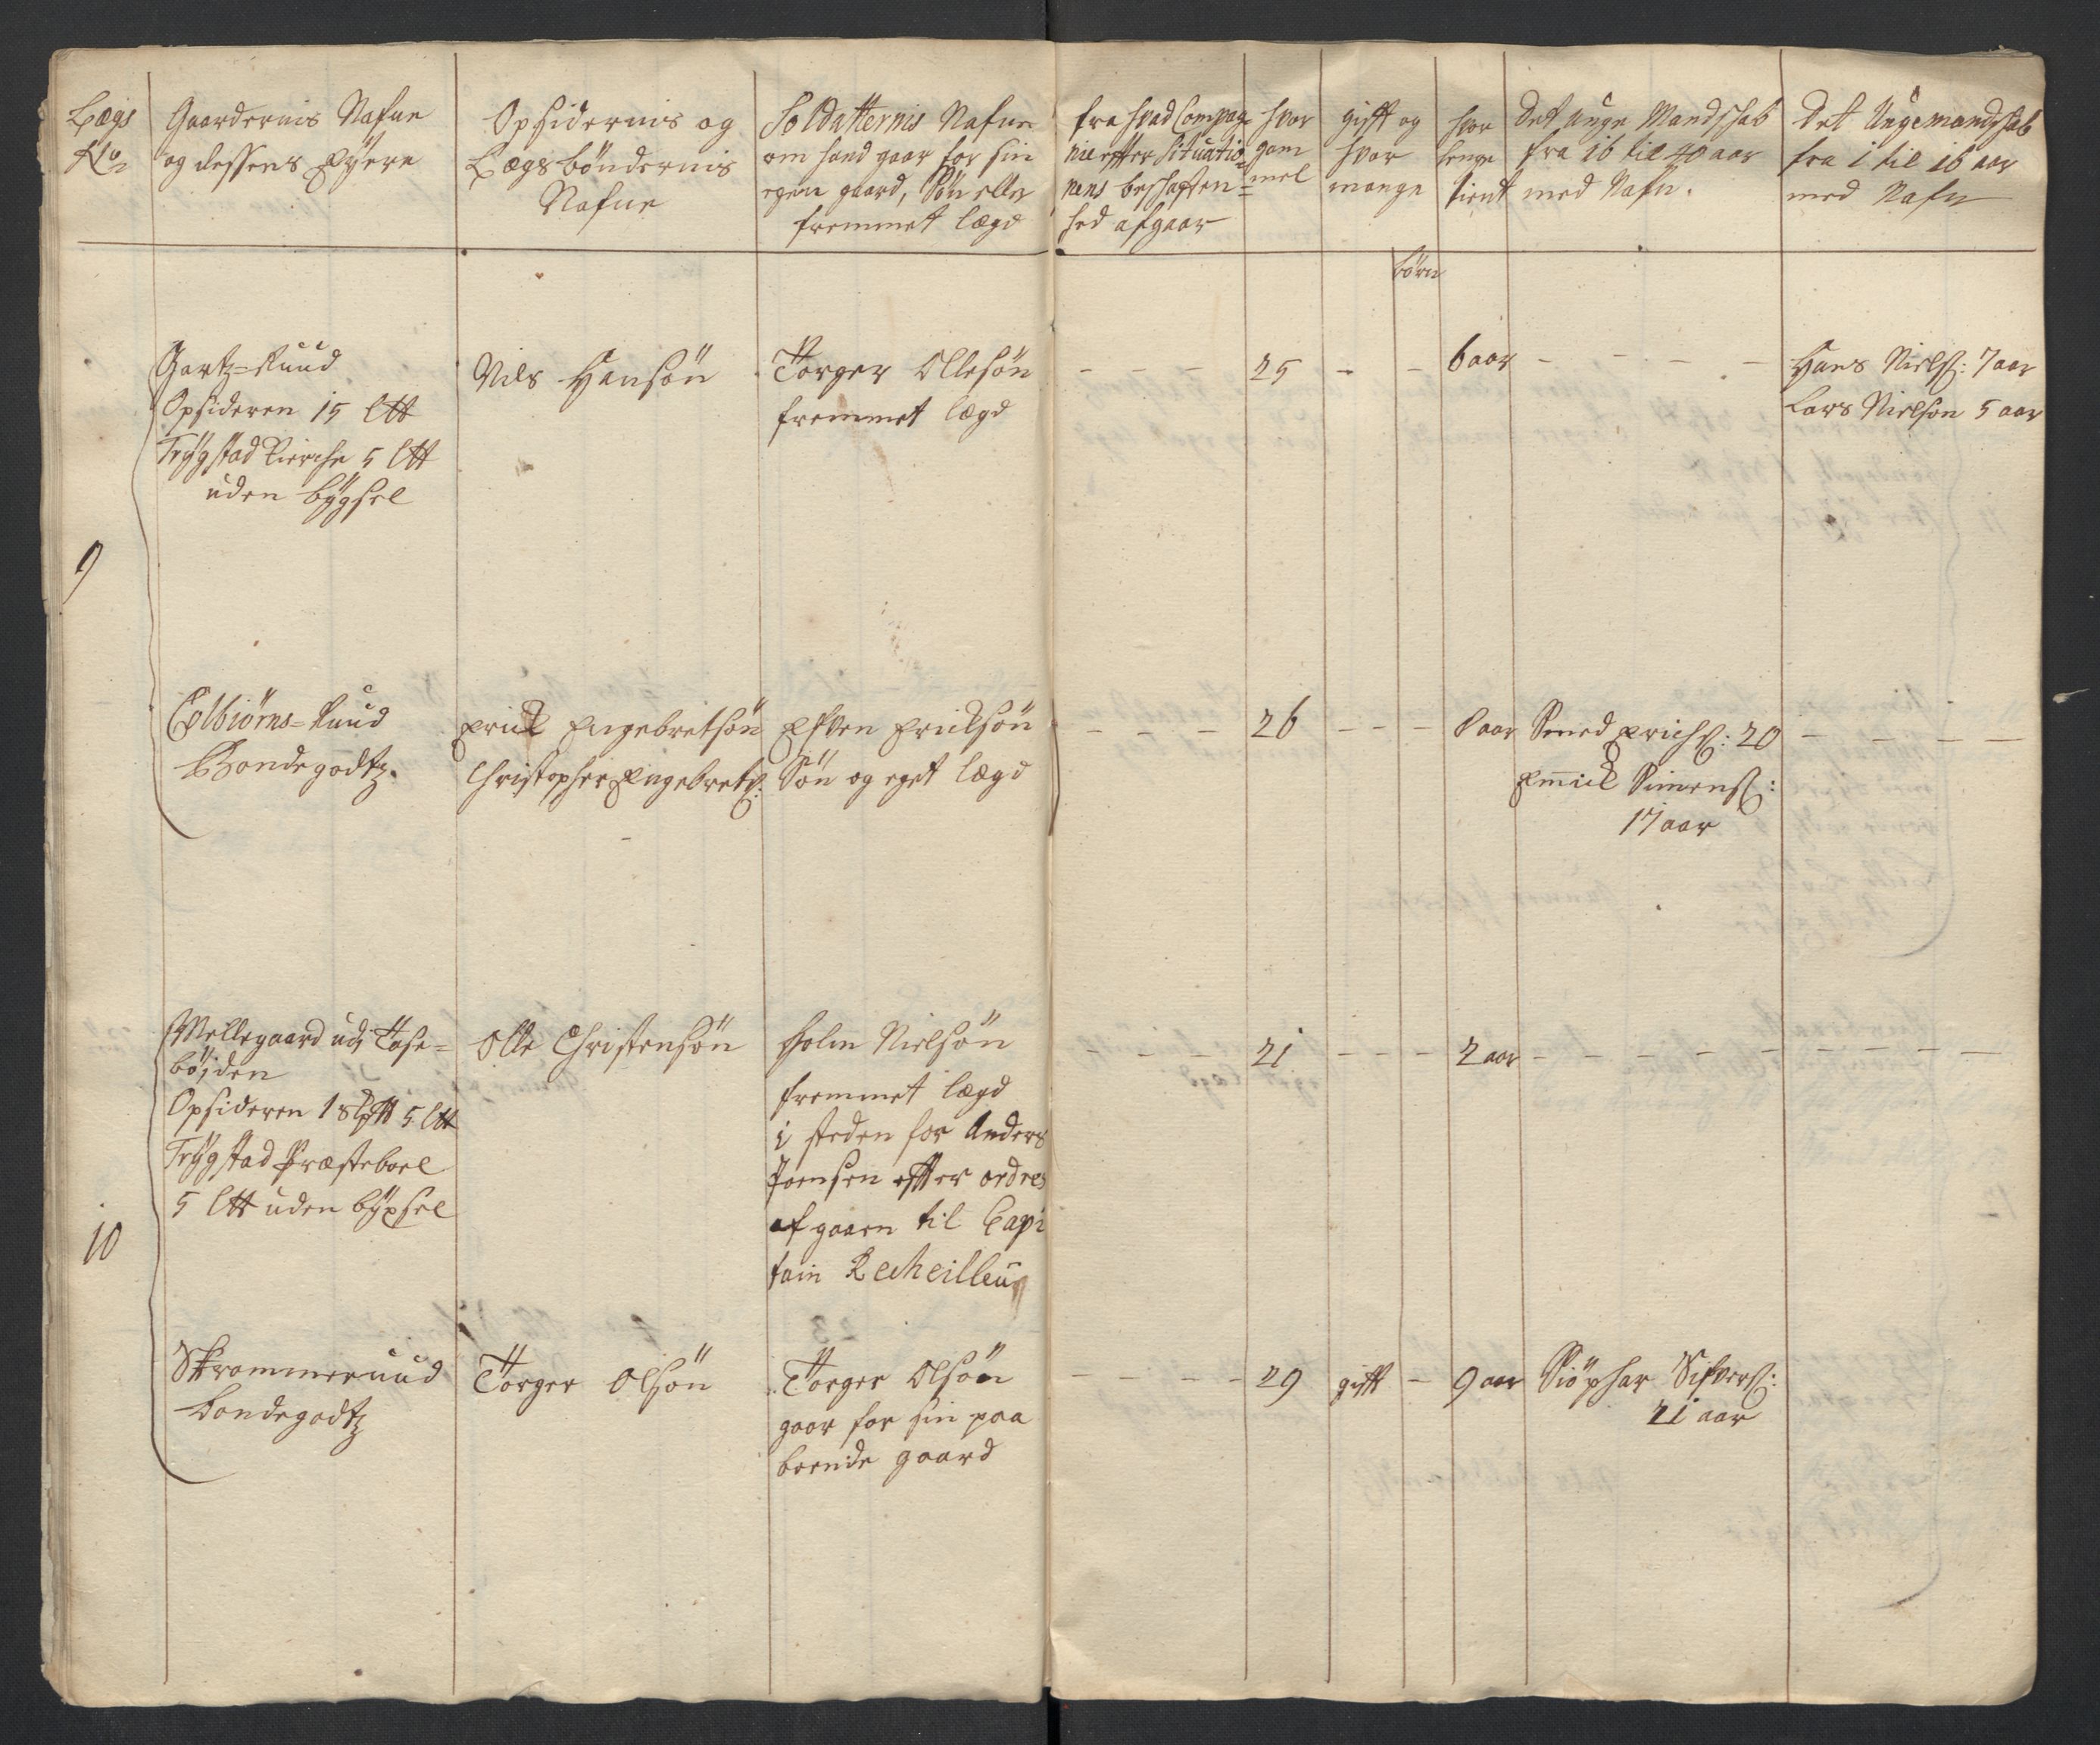 Lægs
No
Gaardernis Nafne
og dessens Eÿere
Opsidernis og
Lægsbøndernis
Nafne
Soldatternis Nafne
om hand gaar for sin
egen gaard, Søn eller
fremmet lægd
fra hvad Compag
nie effter Situatio
nens beschaffen=
hed afgaar
hvor
gam
mel
gifft og
hvor
mange
børn
hvor
lenge
tient
Det unge Mandschab
fra 16 til 40 aar
med Nafn.
Det Ungemandschab
fra 1 til 16 aar
med Nafn
9
Gartz=Ruud
Opsideren 15 L℔
Trÿgstad Kierche 5 L℔
uden bÿgsel
Nils Hansön
Torger Ollesön
fremmet lægd
25
6 aar
Hans Nielsß: 7 aar
Lars Nielsøn 5 aar
Colbiörns=Ruud
Bondegodtz.
Erick Engebretsön
Christopher Engebretß:
Esben Ericksön
Søn og eget lægd
26
8 aar
Smed Erichß: 20
Simensß:
17 aar
10
Mellegaard udj
böjden
Opsideren 1 Skp℔ 5 L℔
Trÿgstad Præsteboel
5 L℔ uden bÿgsel
Olle Christensön
Holm Nielsön
fremmet lægd
i steden for Anders
Joensen effter ordres
afgaaen til Capi
tain
21
2 aar
Skrammeruud
Bondegodtz
Torger Olsön
Torger Olsön
gaar for sin paa
boende gaard
29
gifft
9 aar
Siversß:
21 aar